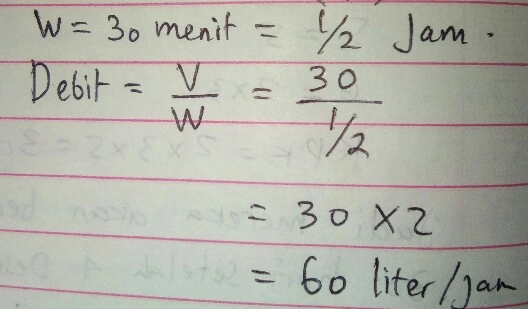 W = 30 menit = 1/2 Jam.
Debit = V/W = 30/1/2
= 30 x 2
= 60 liter/jam